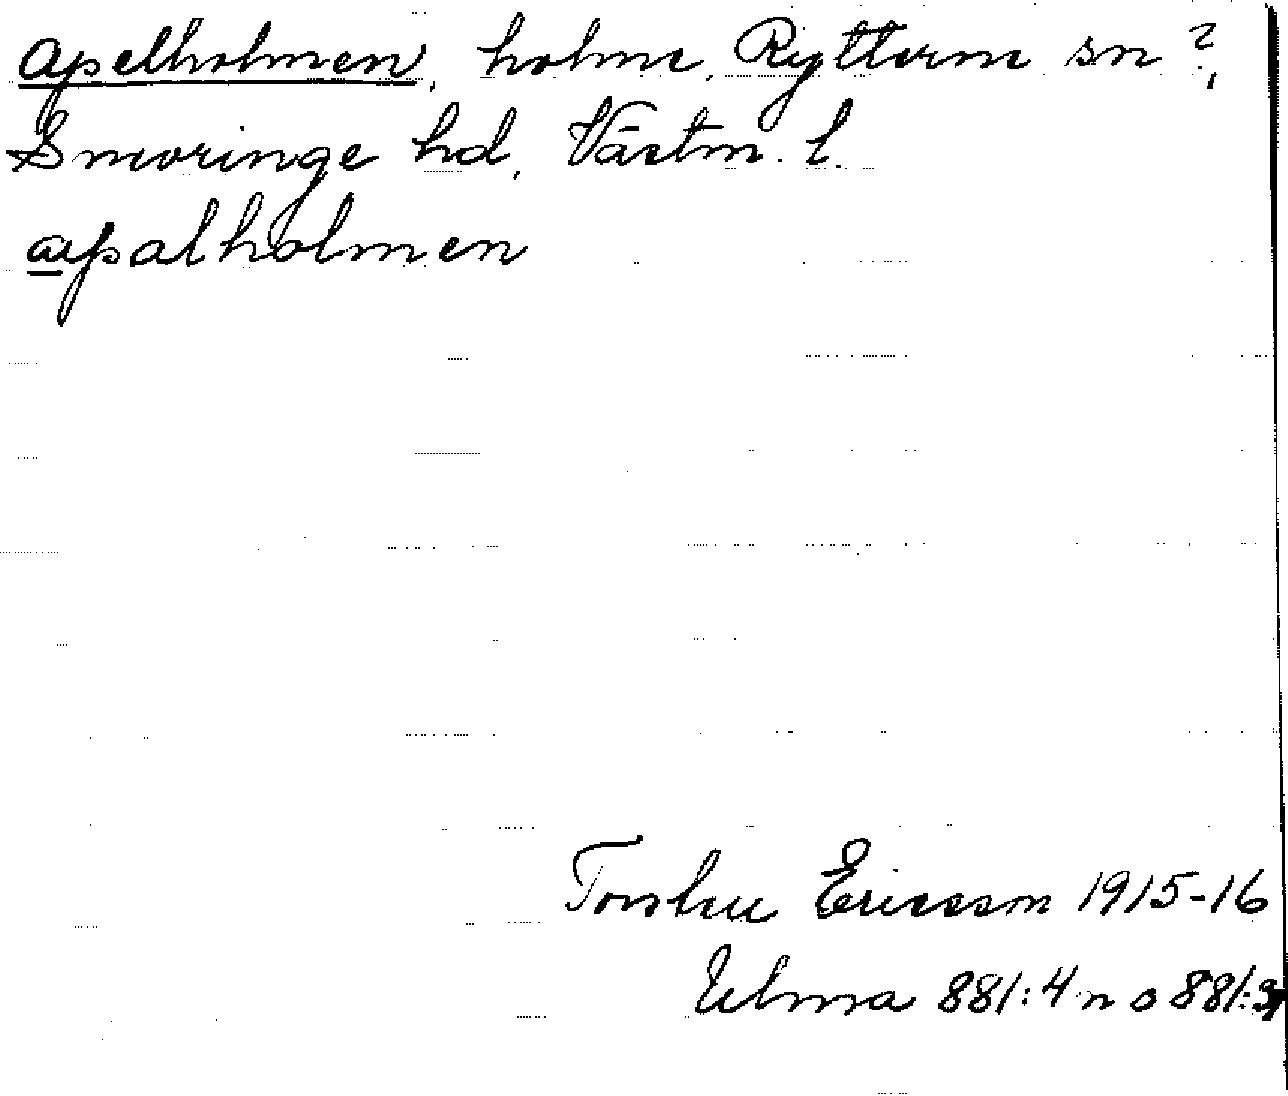 Apelholmen, holme, Rytterne sn?,
Snevringe hd, Västm. l.
apalholmen
Torsten Ericsson 1915-16
Ulma 881:4 n o 881:3